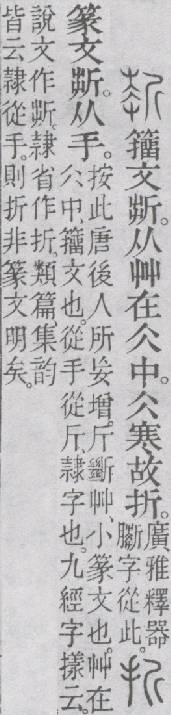 籒文𣂚。从艸在仌中。仌寒、故折。
廣雅釋器
字從此。
篆文𣂚。从手。
按此唐後人所妄增。斤斷艸、小篆文也。艸在
仌中、籒文也。從手從斤、隷字也。九經字㨾云。
說文作𣂚、隷省作折。類篇集韵
皆云隷從手。則折非篆文明矣。